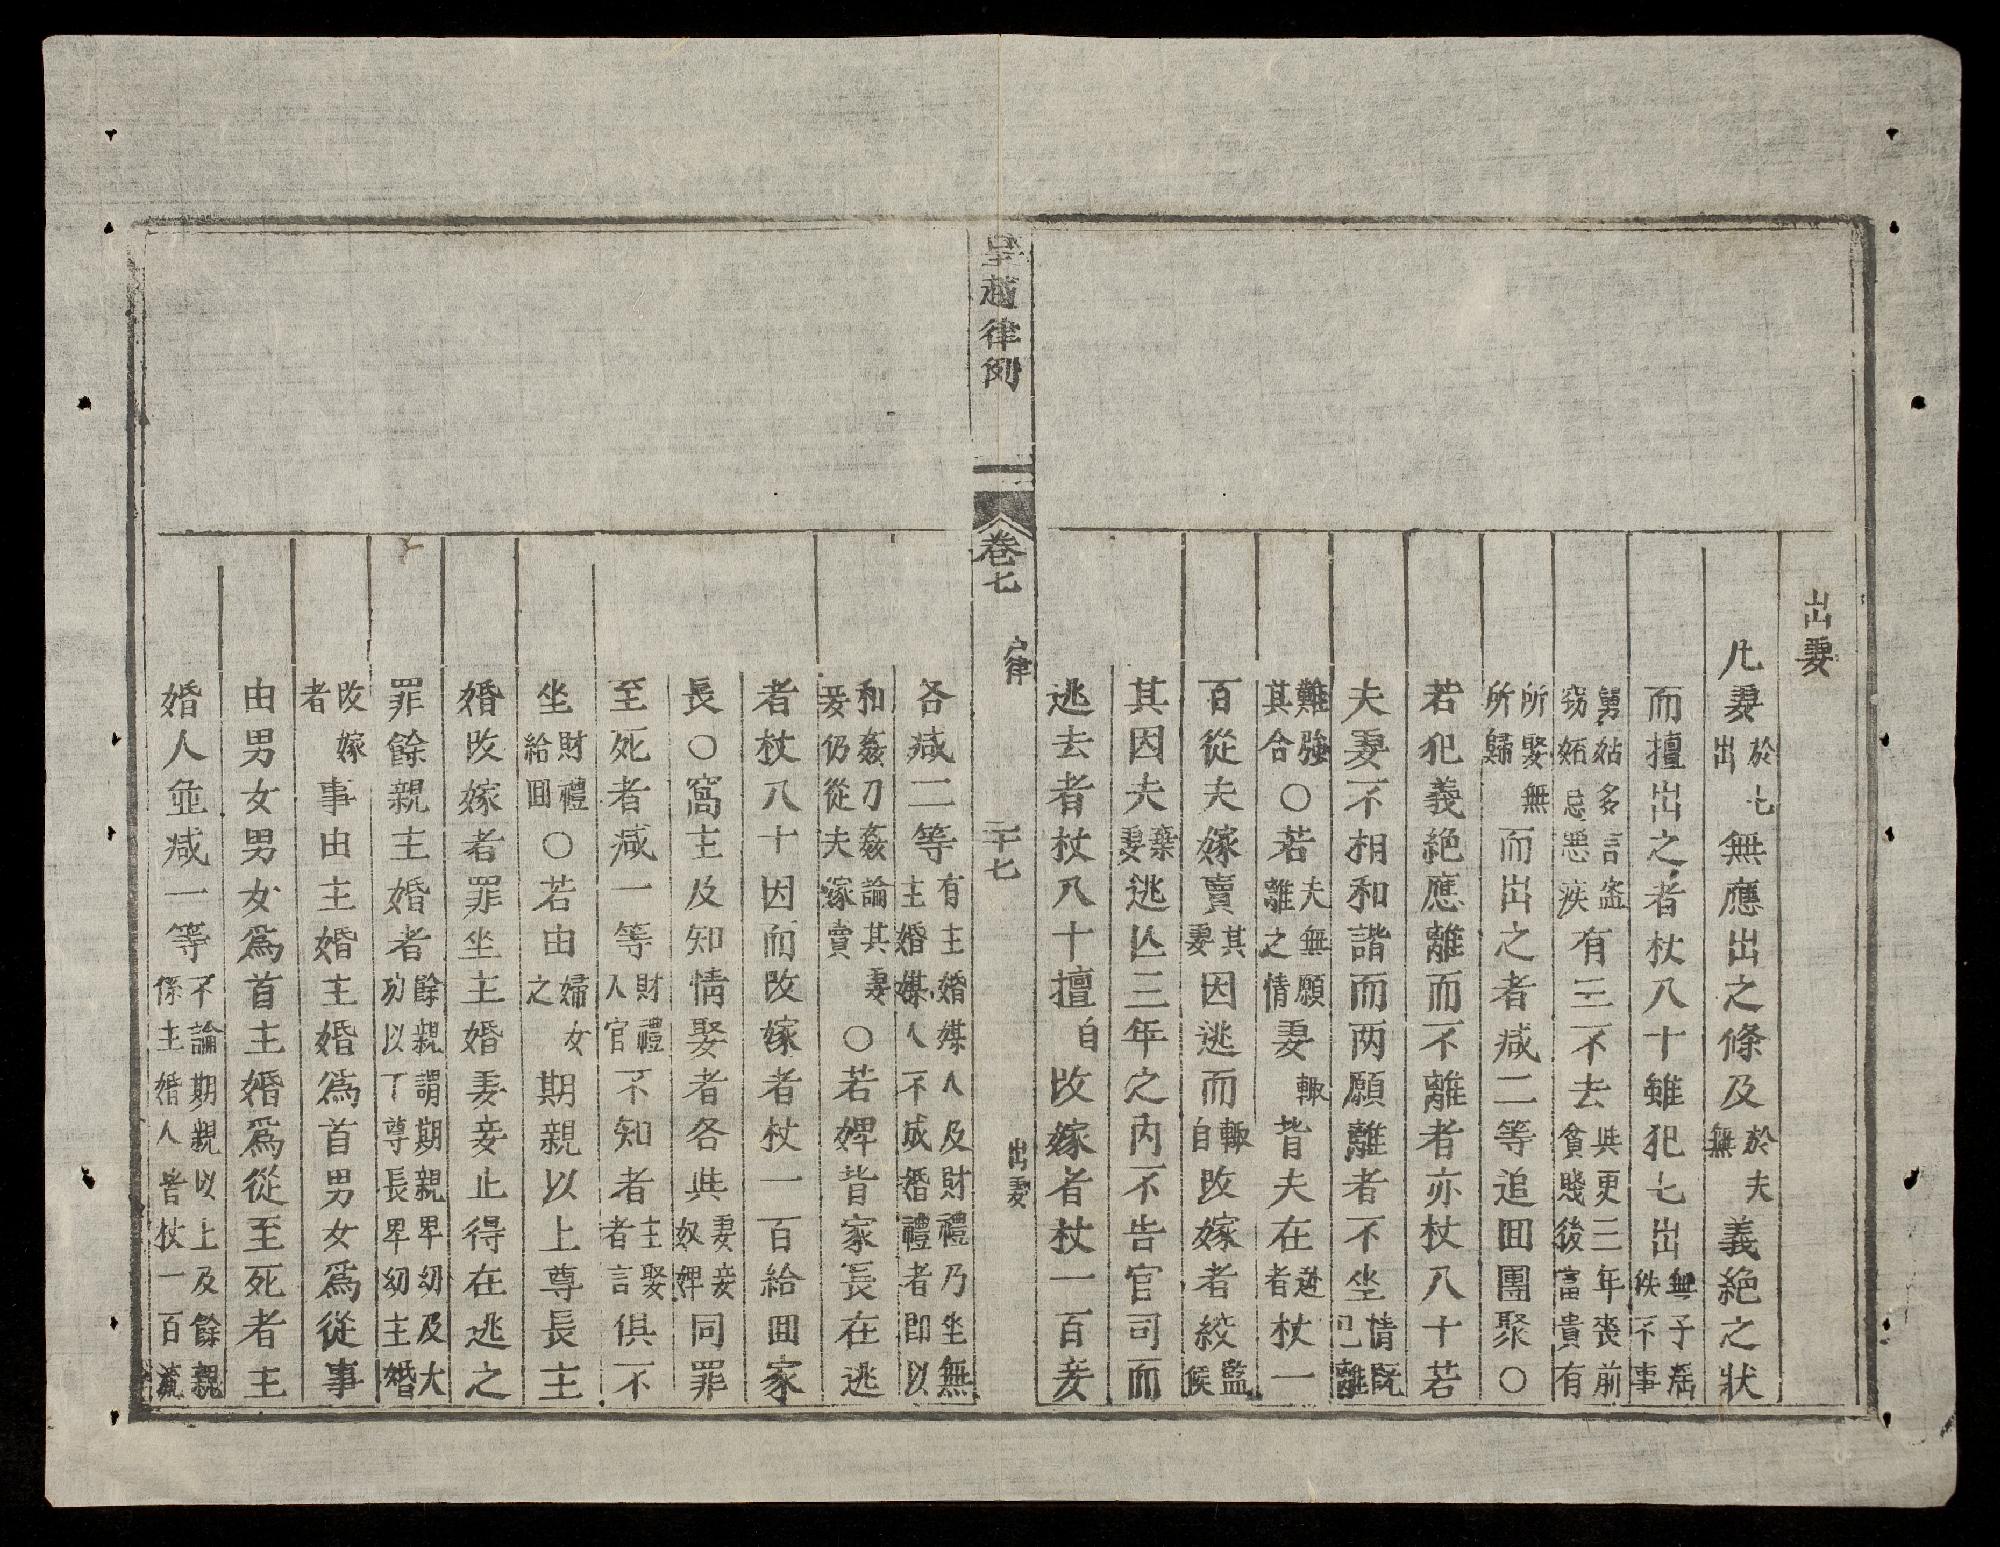 出妻
凡妻於七出無應出之條及於夫無義絕之狀
而擅出之者杖八十雖犯七出無子滛泆不事
舅姑多言盗竊妬忌惡疾有三不去與更三年喪前貧賤後富貴有
所娶無所歸而出之者减二等追囬團聚○
若犯義絕應離而不離者亦杖八十若
夫妻不相和諧而两願離者不坐情既已離
難強其合○若夫無願離之情妻輙背夫在逃者杖一
百從夫嫁賣其妻因逃而輙自改嫁者絞監候
其因夫棄妻逃亡三年之内不告官司而
逃去者杖八十擅自改嫁者杖一百妾
皇越律例 卷七 户律 二十七 出妻
各减二等有主婚媒人及財禮乃坐無主婚媒人不成婚禮者即以
和姦刁姦論其妻妾仍從夫嫁賣○若婢背家長在逃
者杖八十因而改嫁者杖一百給囬家
長○窩主及知情娶者各與妻妾奴婢同罪
至死者减一等財禮入官不知者主娶者言俱不
坐財禮給囬○若由婦女之期親以上尊長主
婚改嫁者罪坐主婚妻妾止得在逃之
罪餘親主婚者餘親謂期親卑幼及大功以下尊長卑幼主婚
改嫁者事由主婚主婚爲首男女爲從事
由男女男女爲首主婚爲從至死者主
婚人並减一等不論期親以上及餘親係主婚人皆杖一百流